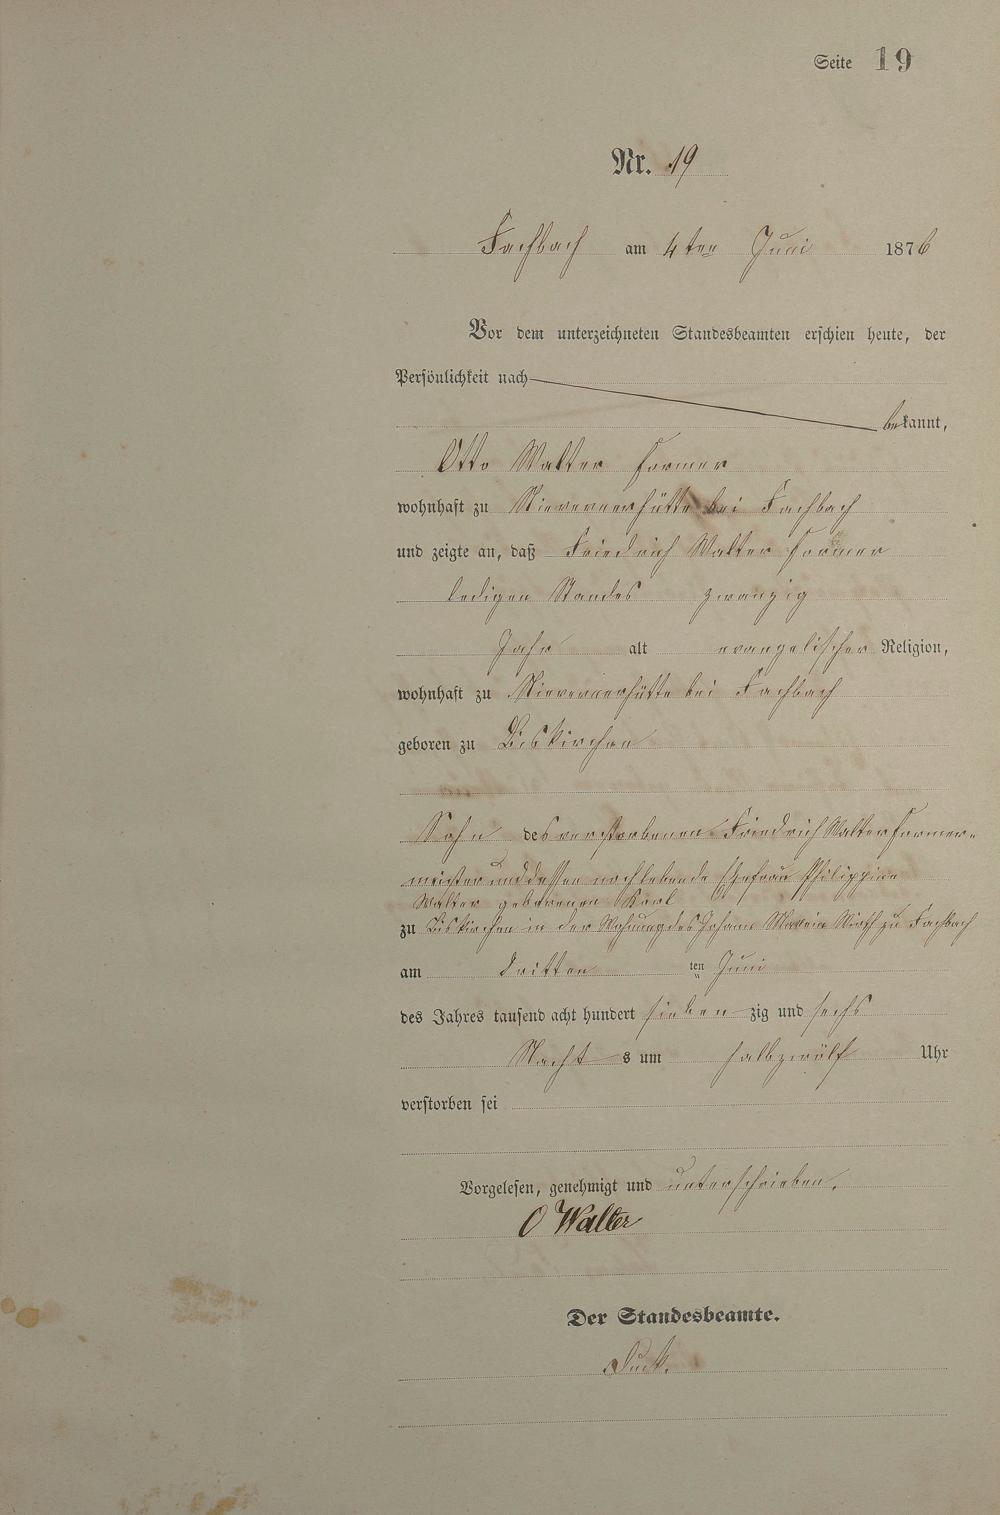 Seite 19
Nr. 19
Fachbach am 4ten Juni 1876
Vor dem unterzeichneten Standesbeamten erschien heute, der
Persönlichkeit nach
bekannt,
Otto Walter Former
wohnhaft zu Nievernerhütte bei Fachbach
und zeigte an, daß Friedrich Walter Former
ledigen Standes zwanzig
Jahr alt evangelischer Religion,
wohnhaft zu Nievernerhütte bei Fachbach
geboren zu Biskirchen
Sohn des verstorbenen Friedrich Walter Former-
meister und dessen nochlebende Ehefrau Philippine
Walter geborenen Karl
zu Biskirchen in der Wohnung des Johann Wirth zu Fachbach
am dritten ten Juni
des Jahres tausend acht hundert sieben zig und sechs
Nacht s um halbzwölf Uhr
verstorben sei
Vorgelesen, genehmigt und unterschrieben.
O Walter
Der Standesbeamte.